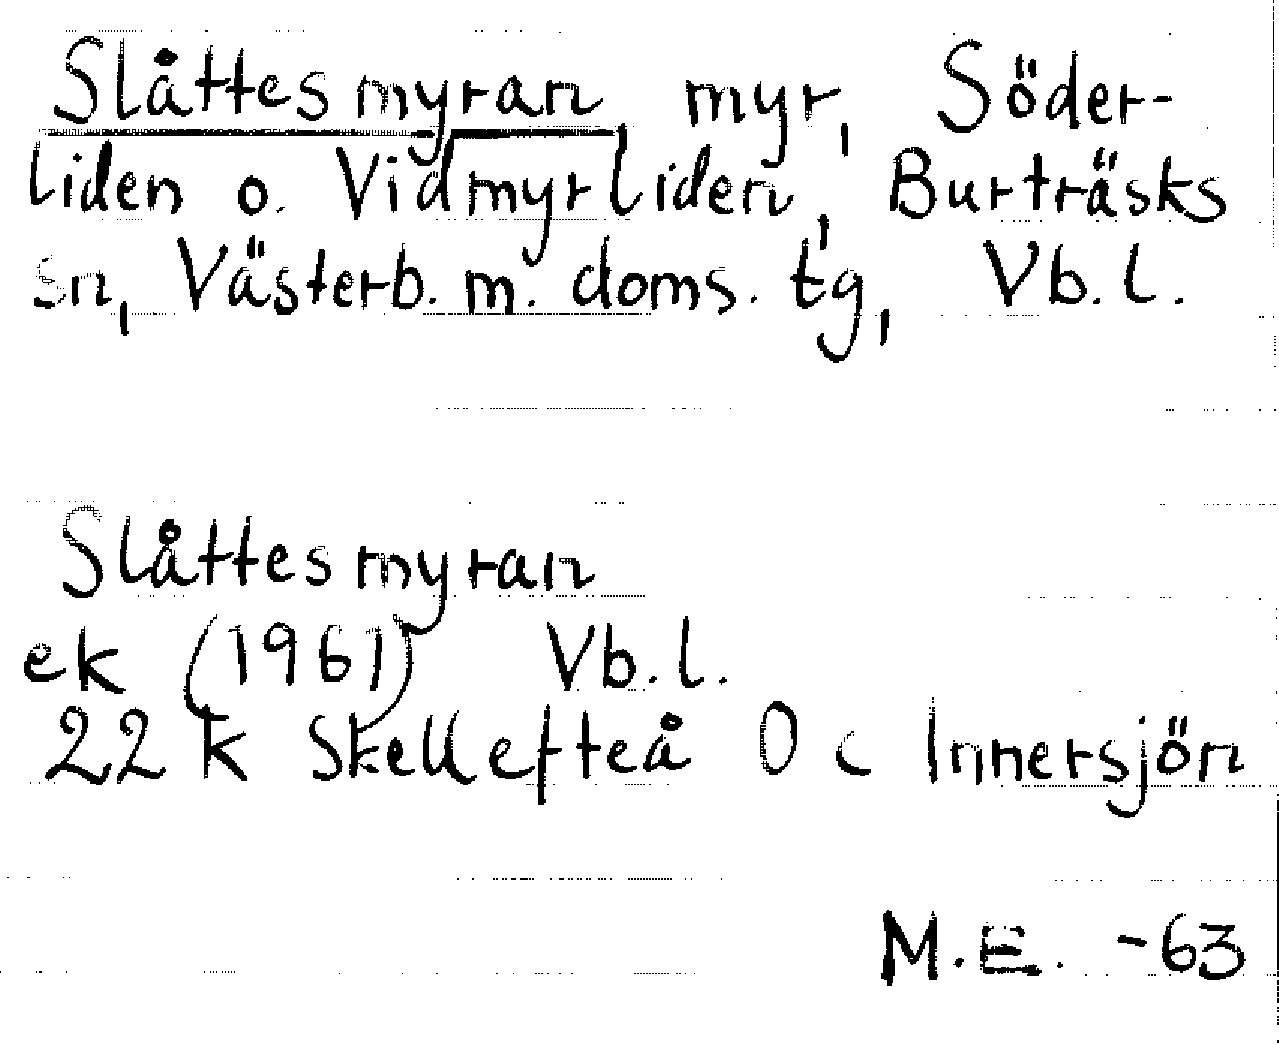 Slåttesmyran, myr, Söder-
liden o. Vidmyrliden, Burträsks
sn, Västerb. m. doms. tg, Vb. l.
Slåttesmyran
ek (1961) Vb. l.
22 k Skellefteå 0 c Innersjön
M.E. -63